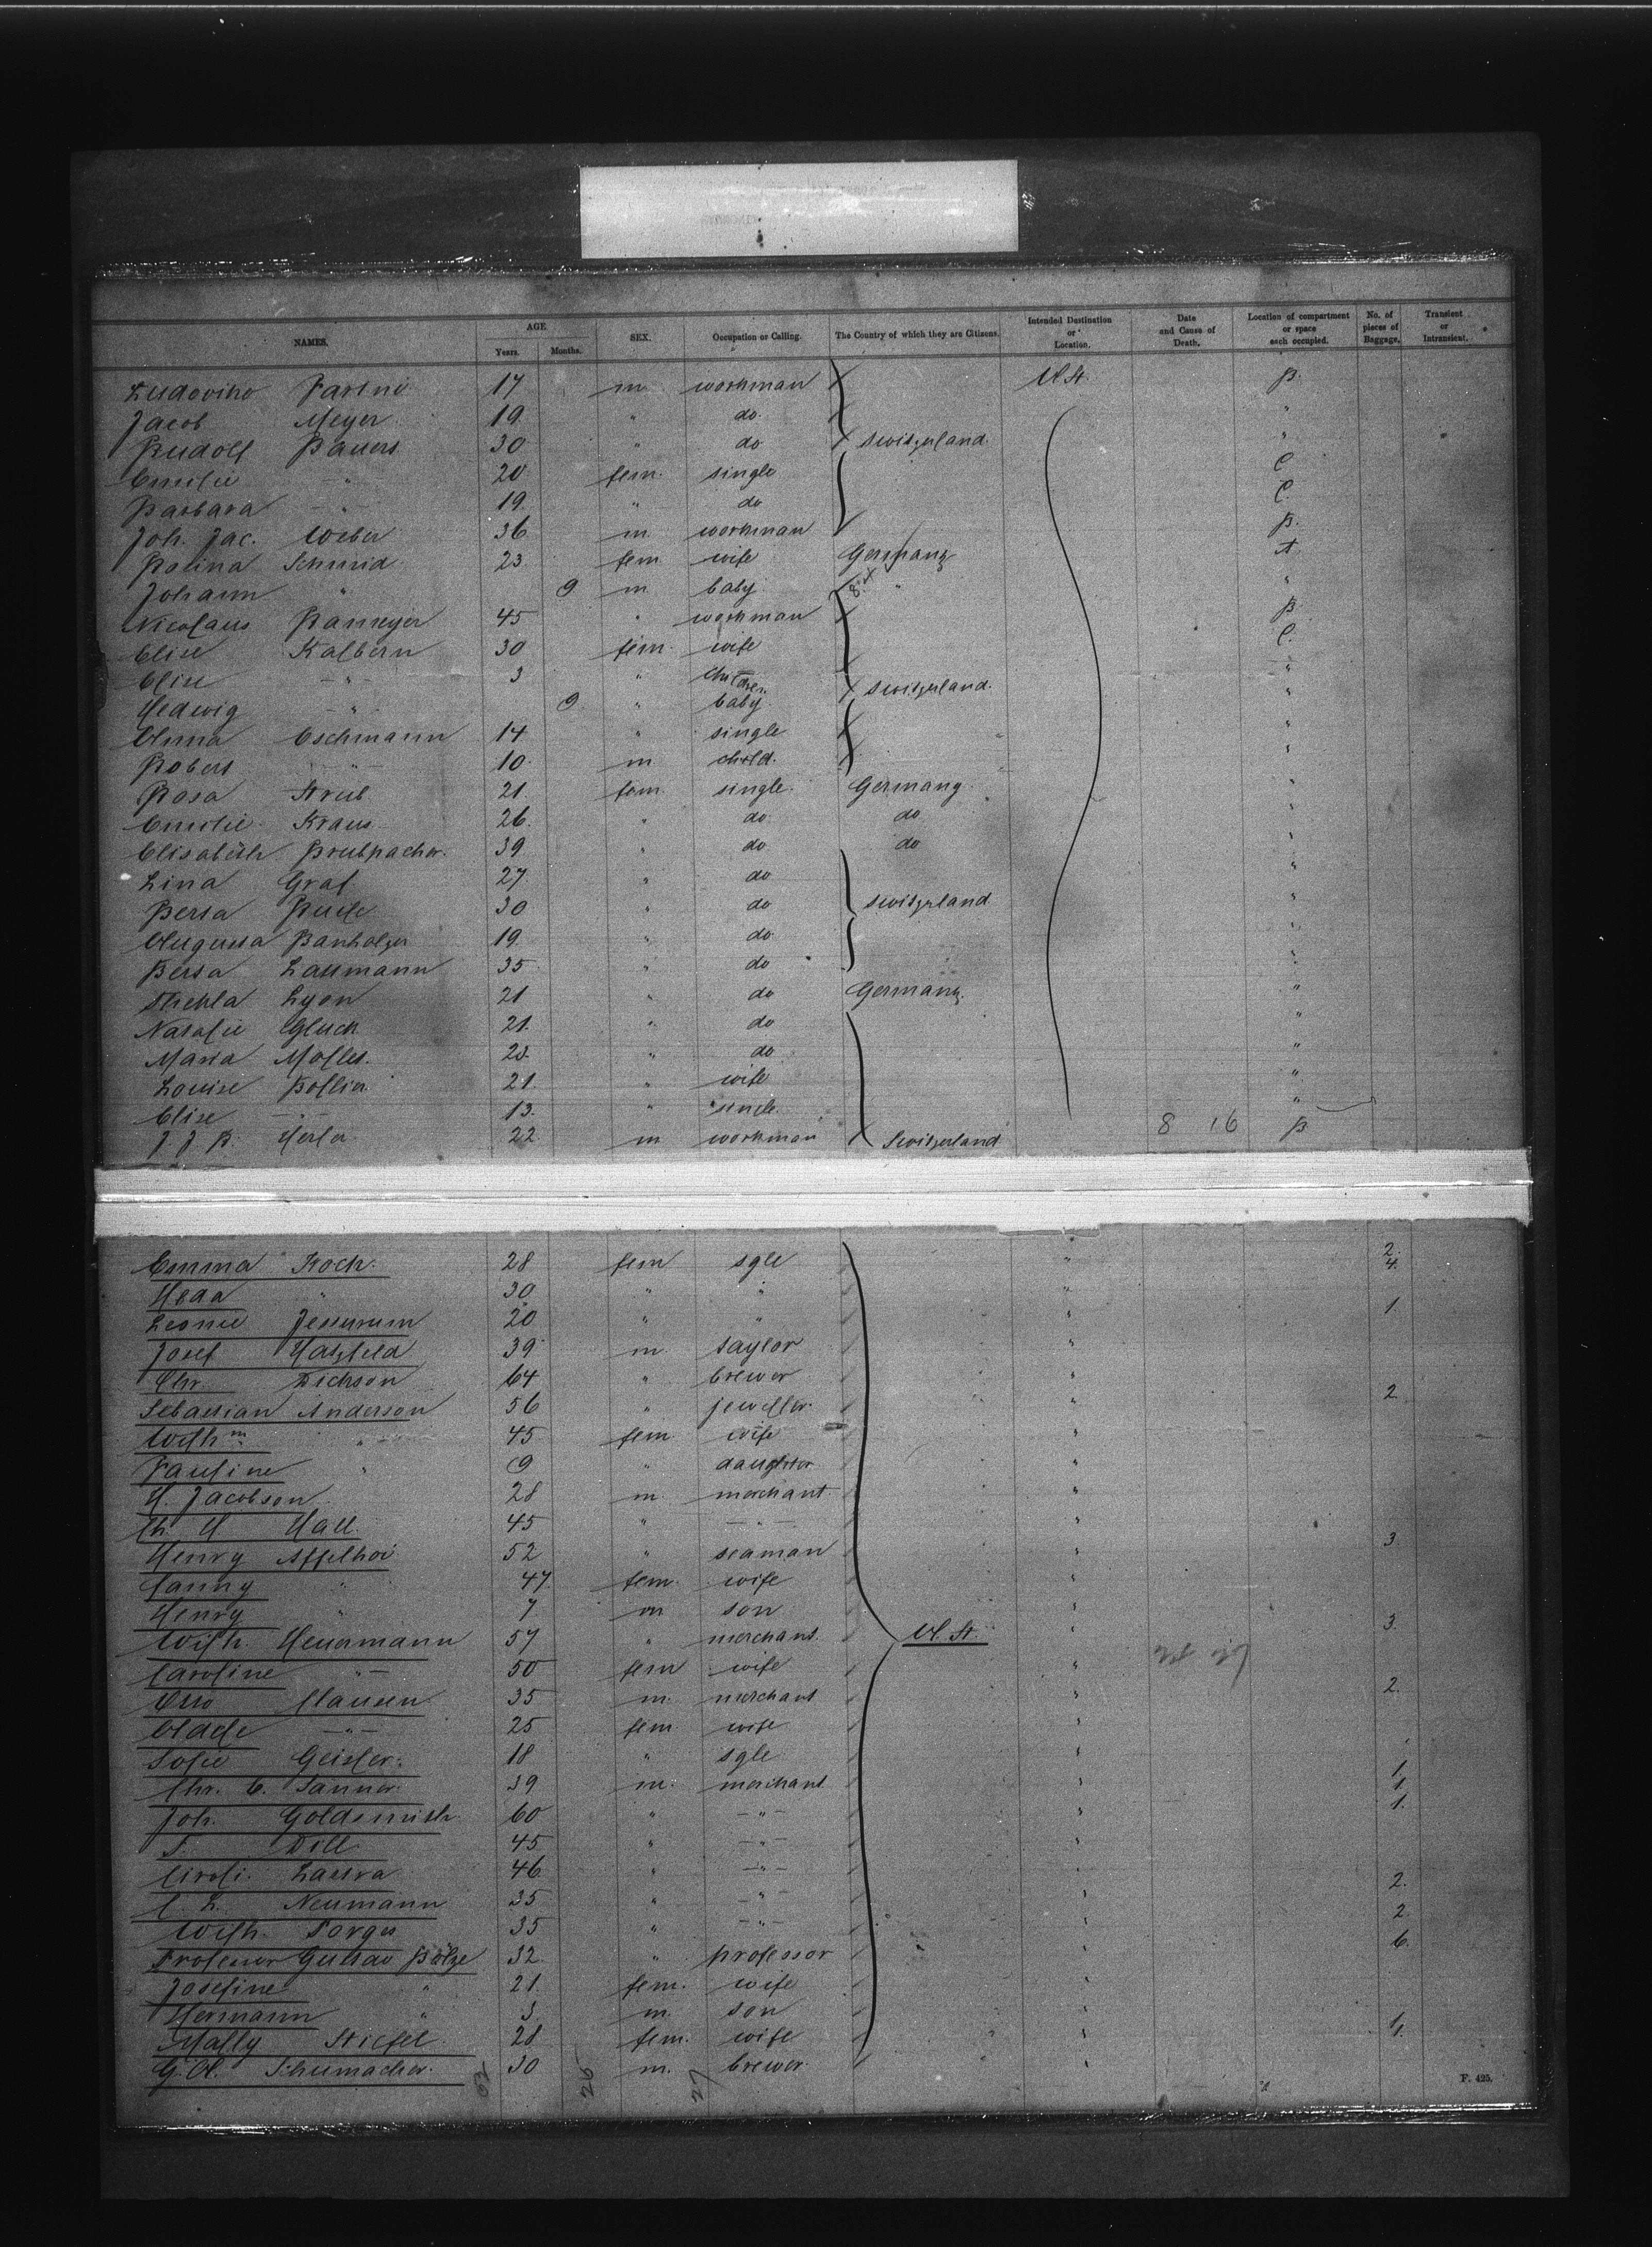 NAMES. AGE Years. Months. SEX. Occupation or Calling. The Country of which they are Citizens. Intended Destination or Location. Date and Cause of Death. Location of compartment or space each occupied. No. of pieces of Baggage. Transient or Intransient.
17 m workman U. St. B.
Jacob Meyer 19 " do. "
Rudolf Bauers 30 " do X Switzerland. "
Emilie " 20 fem. single C.
Barbara " 19 " do C.
Joh. Jac. Weber 36 m workman B.
Rosina Schmid 23 fem wife Germany A
Johann " 9 m baby " "
Nicolaus 45 " workman B.
Elise Kalbern 30 fem. wife C.
Elise " 3 " children "
Hedwig " 9 " baby X Switzerland. "
Anna Eschmann 14 " single "
Robert " 10 m child. "
Rosa Strub 21 fem single. Germany "
Emilie Kraus 26 " do do "
Elisabeth Brubpacher. 39 " do do "
Lina Graf 27 " do "
Berta 30 " do Switzerland "
Augusta Banholzer 19 " do "
Berta Lattmann 35 " do "
Lyon 21 " do Germany. "
Natalie Gluck 21 " do "
Maria 23 " do "
Louise Bollier 21 " wife "
Elise " 13. " "
J. J. B. 22 m workman X Switzerland 8 16 B
Emma Koch. 28 fem sgle " 2.
" 30 " " " 4.
Leonie Jessurum 20 " " " 1.
Josef Hatzfeld 39 m taylor "
Chr. Dickson 64 " brewer "
Sebastian Anderson 56 " jeweller. " 2
Wilh m " 45 fem wife "
Pauline " 9 " daughter "
H. Jacobson 28 m. merchant "
Ch. H Hall 45 " " "
Henry Affelhoi 52 " seaman " 3
Fanny " 47 fem. wife "
Henry " 7 m son "
Wilh. Heuermann 57 " merchant. U. St. " 3.
Caroline " 50 fem wife "
Otto Clausen 35 m. merchant " 2.
Adele " 25 fem wife "
Sofie Geisler. 18 " sgle "
Chr. C. Tanner. 39 m. merchant " 1.
Joh. Goldsmith 60 " " " 1.
Dill 45 " " " 1.
46 " " "
C. L. Neumann 35 " " " 2.
Wilh. Porges 35 " " " 2
Professor Gustav Bölze 32 " professor " 6.
Josefine " 21. fem. wife "
Hermann " 3 m. son "
Mally Stiefel 28 fem. wife " 1.
G. A. Schumacher. 30 m. brewer. "
26 27
F. 425.